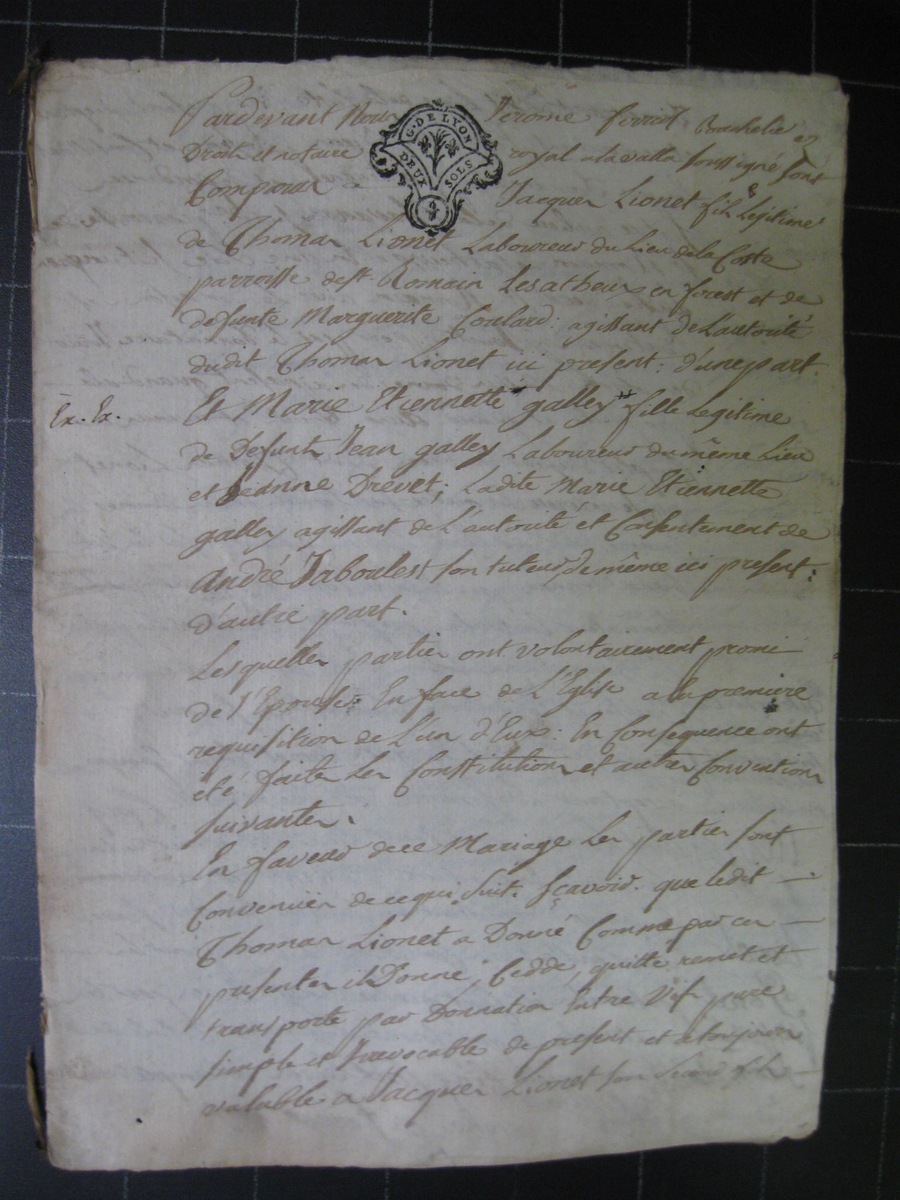 Pardevant Nous Jerome ferriot Bachelie en
G. DE LYON
DEUX SOLS
Droit et notaire royal a la valla soussigné sont
Comparus Jacques Lionet fils Legitime
de Thomas Lionet Laboureur du Lieu de la Coste
parroisse de st. Romain Les atheux en forest et de
defunte Marguerite Coulard: agissant de L'autorité
dudit Thomas Lionet ici present: d'une part.
Ex. Ex.
Et Marie Etiennette galley fille Legitime
de Defunt Jean galley Laboureur du même Lieu
et Jeanne Drevet; Ladite Marie Etiennette
galley agissant de L'autorité et Consentement de
André Jaboulest son tuteur de même ici present:
d'autre part.
Lesquelles parties ont volontairement promi
de s'Epouser En face de L'Eglise a la premiere
requisition de L'un d'Eux: En Consequence ont
eté faites Les Constitutions et autres Conventions
suivantes.
En faveur de ce Mariage Les parties sont
Convenües de ce qui suit. sçavoir. que ledit
Thomas Lionet a Donné Comme par ces
presentes il Donne, Cedde, quitte remet et
transporte par Donnation Entre Vifs pure
simple et Irrevocable de present et a toujours
valable a Jacques Lionet son second fils